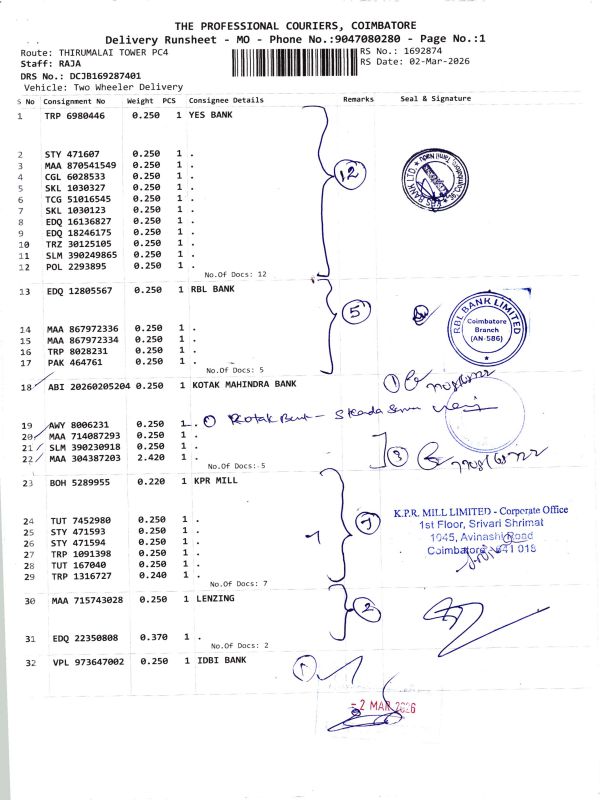 THE PROFESSIONAL COURIERS, COIMBATORE
Delivery Runsheet - MO - Phone No.:9047080280 - Page No.:1
Route: THIRUMALAI TOWER PC4
RS No.: 1692874
Staff: RAJA
RS Date: 02-Mar-2026
DRS No.: DCJB169287401
Vehicle: Two Wheeler Delivery
S No Consignment No Weight PCS Consignee Details Remarks Seal & Signature
1 TRP 6980446 0.250 1 YES BANK
2 STY 471607 0.250 1 .
3 MAA 870541549 0.250 1 .
4 CGL 6028533 0.250 1 .
5 SKL 1030327 0.250 1 .
6 TCG 51016545 0.250 1 .
7 SKL 1030123 0.250 1 .
8 EDQ 16136827 0.250 1 .
9 EDQ 18246175 0.250 1 .
10 TRZ 30125105 0.250 1 .
11 SLM 390249865 0.250 1 .
12 POL 2293895 0.250 1 .
12
No.Of Docs: 12
13 EDQ 12805567 0.250 1 RBL BANK
5
RBL BANK LIMITED
Coimbatore
Branch
(AN-586)
14 MAA 867972336 0.250 1 .
15 MAA 867972334 0.250 1 .
16 TRP 8028231 0.250 1 .
17 PAK 464761 0.250 1 .
No.Of Docs: 5
18 ABI 20260205204 0.250 1 KOTAK MAHINDRA BANK
1
19 AWY 8006231 0.250 1 . 1 Kotak Bank -
20 MAA 714087293 0.250 1 .
21 SLM 390230918 0.250 1 .
22 MAA 304387203 2.420 1 .
3
No.Of Docs: 5
23 BOH 5289955 0.220 1 KPR MILL
K.P.R. MILL LIMITED - Corperate Office
1st Floor, Srivari Shrimat
1045, Avinashi Road
Coimbatore - 641 018
24 TUT 7452980 0.250 1 .
25 STY 471593 0.250 1 .
26 STY 471594 0.250 1 .
27 TRP 1091398 0.250 1 .
28 TUT 167040 0.250 1 .
29 TRP 1316727 0.240 1 .
7
No.Of Docs: 7
30 MAA 715743028 0.250 1 LENZING
2
31 EDQ 22350808 0.370 1 .
No.Of Docs: 2
32 VPL 973647002 0.250 1 IDBI BANK
1
- 2 MAR 2026